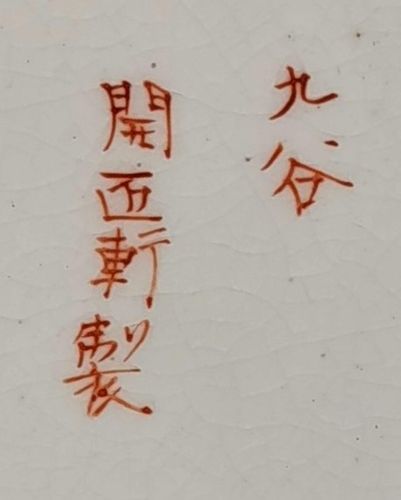 九谷
開匠軒製